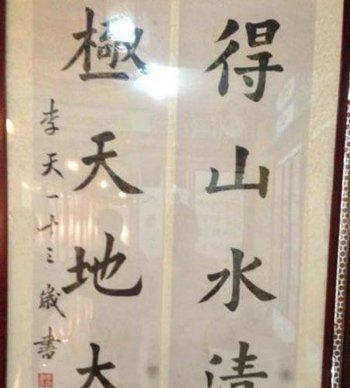 得山水清
極天地大
李天一十三歲書